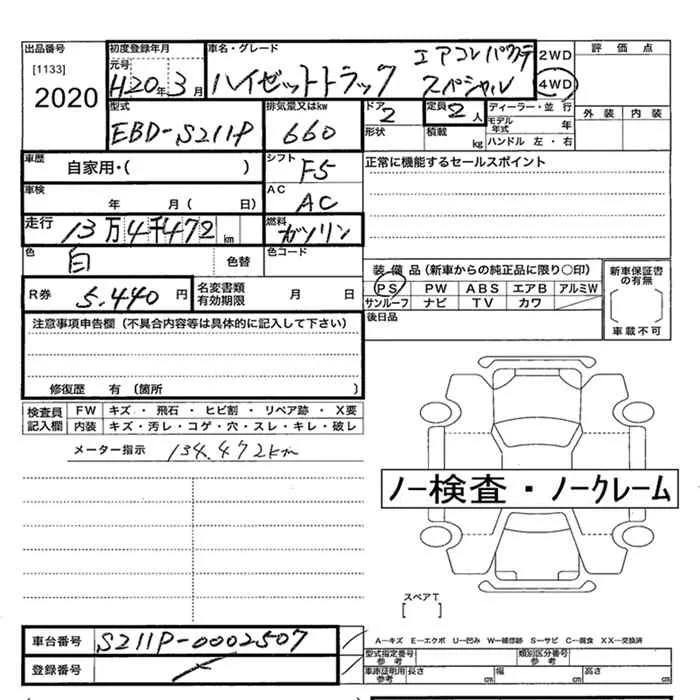 出品番号 初度登録年月 車名・グレード エアコン パワステ 2WD 評価点
[1133] 元号 H20年 3月 ハイゼットトラック スペシャル 4WD
2020
型式 排気量又はkw ドア 2 定員 2人 ディーラー・並行 外装 内装
EBD-S211P 660 形状 積載 kg モデル年式 年
ハンドル 左・右
車歴 自家用・( ) シフト F5 正常に機能するセールスポイント
車検 年 月( 日) AC AC
走行 13万4千472km 燃料 ガソリン
色 白 色替 色コード
装備品(新車からの純正品に限り○印) 新車保証書の有無
R券 5.440円 名変書類有効期限 月 日 PS PW ABS エアB アルミW
サンルーフ ナビ TV カワ
注意事項申告欄(不具合内容等は具体的に記入して下さい) 後日品 車載不可
修復歴 有(箇所 )
検査員記入欄 FW キズ・飛石・ヒビ割・リペア跡・X要
内装 キズ・汚レ・コゲ・穴・スレ・キレ・破レ
メーター指示 134.472km
ノー検査・ノークレーム
スペアT
[ ]
車台番号 S211P-0002507
A…キズ E…エクボ U…凹み W…補修跡 S…サビ C…腐食 XX…交換済
登録番号
型式指定番号 参考 類別区分番号 参考
車庫証明用 参考 長さ cm 幅 cm 高さ cm